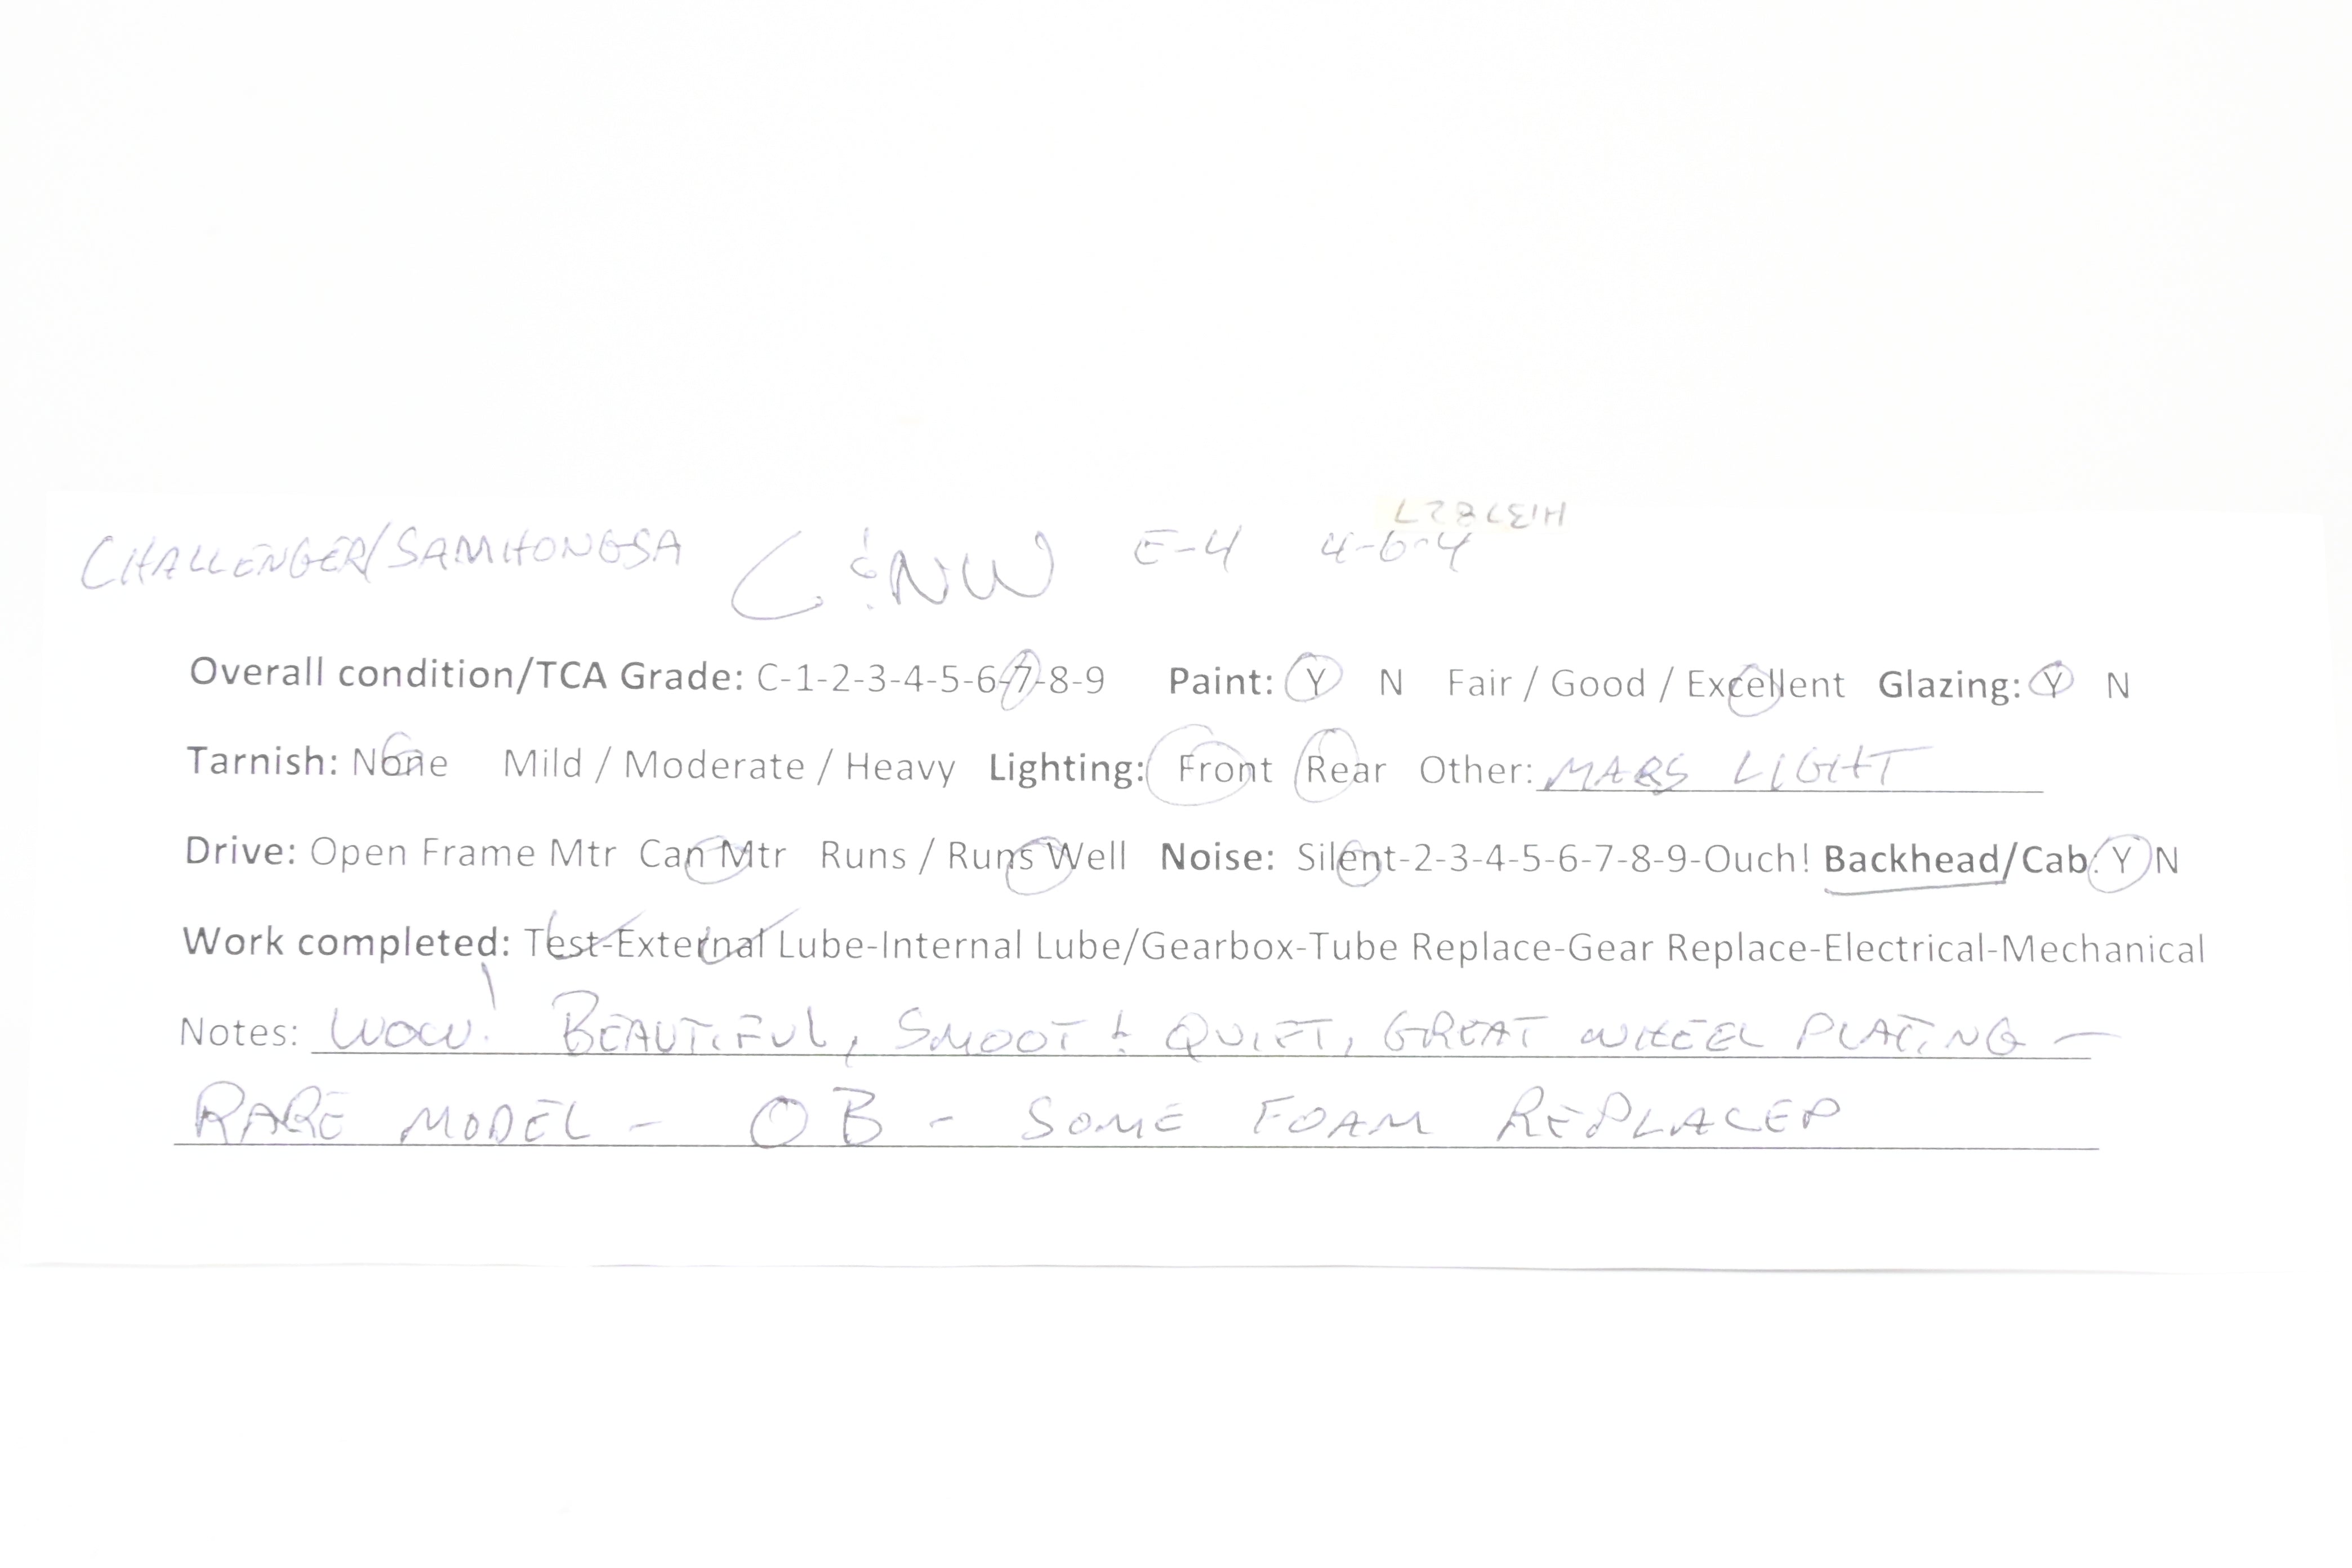 H137827
CHALLENGER/SAMHONGSA C&NW E-4 4-6-4
Overall condition/TCA Grade: C-1-2-3-4-5-6-7-8-9 Paint: Y N Fair / Good / Excellent Glazing: Y N
Tarnish: None Mild / Moderate / Heavy Lighting: Front Rear Other: MARS LIGHT
Drive: Open Frame Mtr Can Mtr Runs / Runs Well Noise: Silent-2-3-4-5-6-7-8-9-Ouch! Backhead/Cab: Y N
Work completed: Test-External Lube-Internal Lube/Gearbox-Tube Replace-Gear Replace-Electrical-Mechanical
Notes: WOW! BEAUTIFUL, SMOOT & QUIET, GREAT WHEEL PLATING -
RARE MODEL - OB - SOME FOAM REPLACED